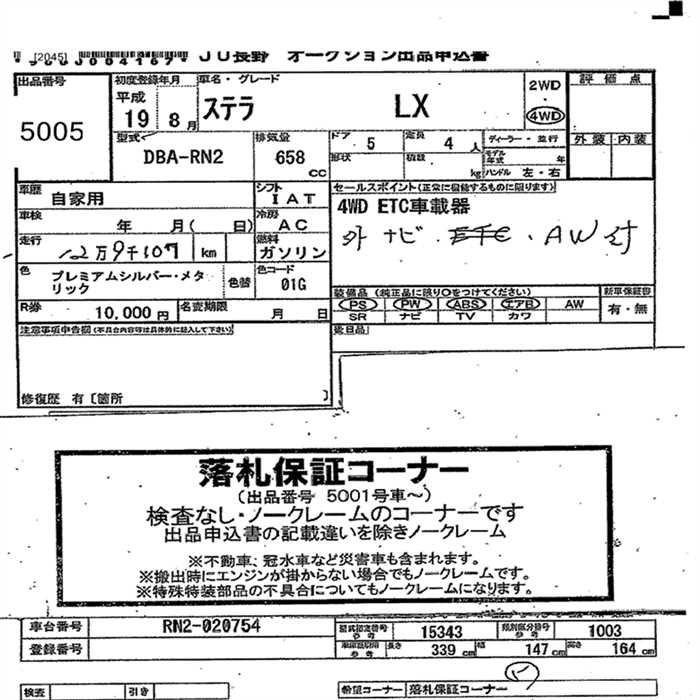 [2045]
JU長野 オークション出品申込書
出品番号
5005
初度登録年月
平成
19 8月
車名・グレード
ステラ LX
2WD
4WD
評価点
外装 内装
型式
DBA-RN2
排気量
658 cc
ドア 5
定員 4 人
形状
積載 kg
ディーラー・並行
モデル年式 年
ハンドル 左・右
車歴
自家用
シフト
IAT
セールスポイント(正常に機能するものに限ります)
4WD ETC車載器
外ナビ・ETC・AW付
車検
年 月( 日)
冷房
AC
走行
12万9千107 km
燃料
ガソリン
色
プレミアムシルバー・メタリック
色替
色コード
01G
装備品(純正品に限り○をつけてください)
PS PW ABS エアB AW
SR ナビ TV カワ
新車保証書
有・無
R券
10,000円
名変期限
月 日
注意事項申告欄(不具合内容等は具体的に記入して下さい)
修復歴 有〔箇所 〕
落札保証コーナー
(出品番号 5001号車～)
検査なし・ノークレームのコーナーです
出品申込書の記載違いを除きノークレーム
※不動車、冠水車など災害車も含まれます。
※搬出時にエンジンが掛からない場合でもノークレームです。
※特殊特装部品の不具合についてもノークレームになります。
車台番号
RN2-020754
型式指定番号
参考
15343
類別区分番号
参考
1003
登録番号
参考
長さ 339 cm
幅 147 cm
高さ 164 cm
検査
引き
希望コーナー
落札保証コーナー